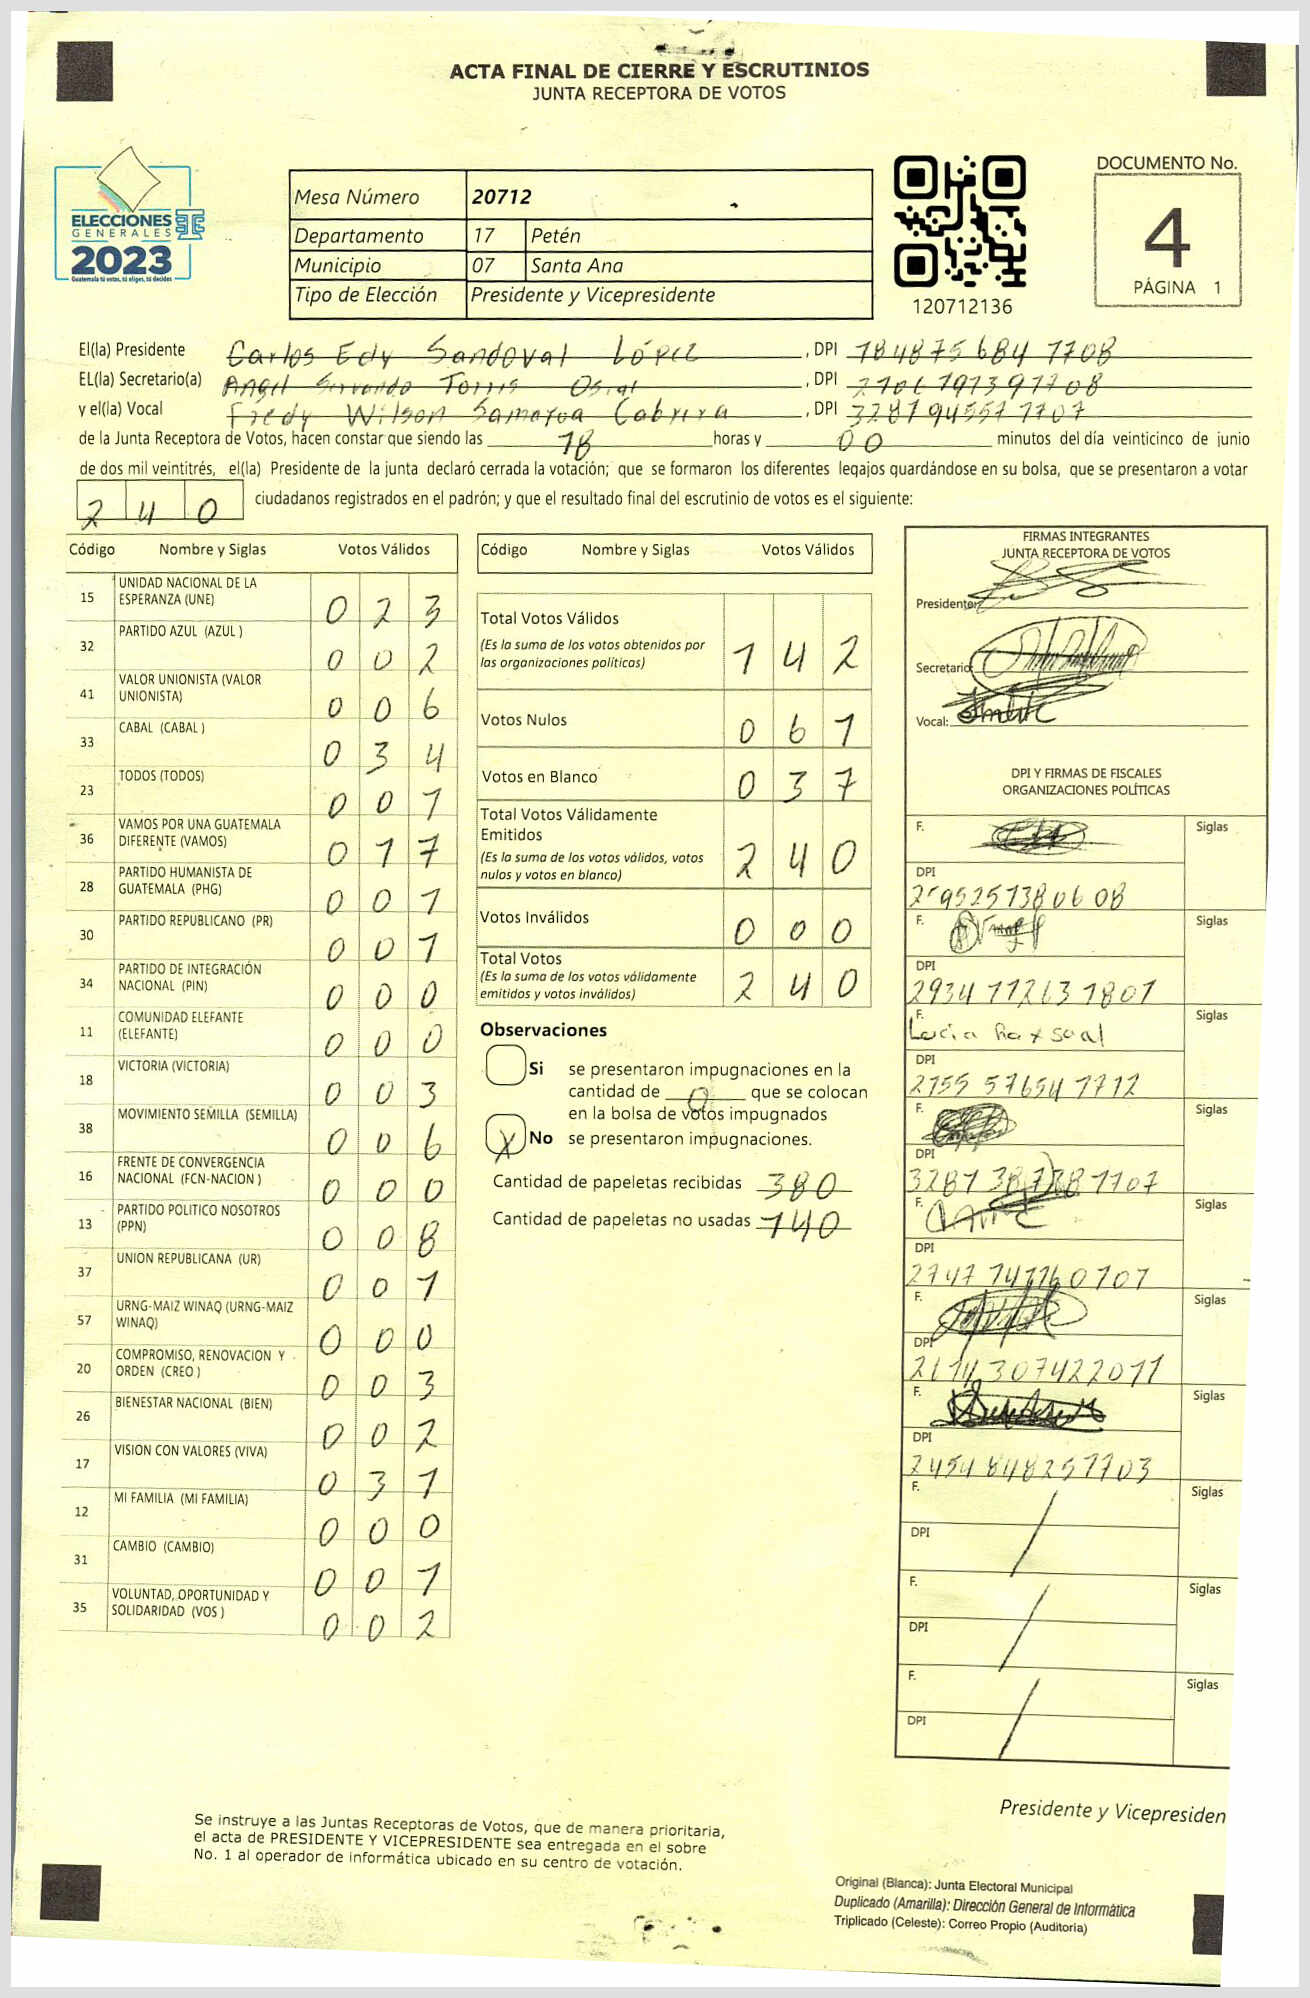 ACTA FINAL DE CIERRE Y ESCRUTINIOS
JUNTA RECEPTORA DE VOTOS
ELECCIONES
GENERALES
2023
Guatemala tú votas, tú eliges, tú decides
Mesa Número 20712
Departamento 17 Petén
Municipio 07 Santa Ana
Tipo de Elección Presidente y Vicepresidente
120712136
DOCUMENTO No.
4
PÁGINA 1
El(la) Presidente Carlos Edy Sandoval López , DPI 784875684 7708
EL(la) Secretario(a) Angel Torres , DPI
y el(la) Vocal Fredy Wilson Samayoa Cabrera , DPI 328794557 7707
de la Junta Receptora de Votos, hacen constar que siendo las 18 horas y 00 minutos del día veinticinco de junio
de dos mil veintitrés, el(la) Presidente de la junta declaró cerrada la votación; que se formaron los diferentes legajos guardándose en su bolsa, que se presentaron a votar
240 ciudadanos registrados en el padrón; y que el resultado final del escrutinio de votos es el siguiente:
Código Nombre y Siglas Votos Válidos
15 UNIDAD NACIONAL DE LA ESPERANZA (UNE) 0 2 3
32 PARTIDO AZUL (AZUL ) 0 0 2
41 VALOR UNIONISTA (VALOR UNIONISTA) 0 0 6
33 CABAL (CABAL ) 0 3 4
23 TODOS (TODOS) 0 0 1
36 VAMOS POR UNA GUATEMALA DIFERENTE (VAMOS) 0 1 7
28 PARTIDO HUMANISTA DE GUATEMALA (PHG) 0 0 1
30 PARTIDO REPUBLICANO (PR) 0 0 1
34 PARTIDO DE INTEGRACIÓN NACIONAL (PIN) 0 0 0
11 COMUNIDAD ELEFANTE (ELEFANTE) 0 0 0
18 VICTORIA (VICTORIA) 0 0 3
38 MOVIMIENTO SEMILLA (SEMILLA) 0 0 6
16 FRENTE DE CONVERGENCIA NACIONAL (FCN-NACION ) 0 0 0
13 PARTIDO POLITICO NOSOTROS (PPN) 0 0 8
37 UNION REPUBLICANA (UR) 0 0 1
57 URNG-MAIZ WINAQ (URNG-MAIZ WINAQ) 0 0 0
20 COMPROMISO, RENOVACION Y ORDEN (CREO ) 0 0 3
26 BIENESTAR NACIONAL (BIEN) 0 0 2
17 VISION CON VALORES (VIVA) 0 3 1
12 MI FAMILIA (MI FAMILIA) 0 0 0
31 CAMBIO (CAMBIO) 0 0 1
35 VOLUNTAD, OPORTUNIDAD Y SOLIDARIDAD (VOS ) 0 0 2
Código Nombre y Siglas Votos Válidos
Total Votos Válidos
(Es la suma de los votos obtenidos por las organizaciones políticas) 1 4 2
Votos Nulos 0 6 1
Votos en Blanco 0 3 7
Total Votos Válidamente Emitidos
(Es la suma de los votos válidos, votos nulos y votos en blanco) 2 4 0
Votos Inválidos 0 0 0
Total Votos
(Es la suma de los votos válidamente emitidos y votos inválidos) 2 4 0
Observaciones
Si se presentaron impugnaciones en la
cantidad de 0 que se colocan
en la bolsa de votos impugnados
X No se presentaron impugnaciones.
Cantidad de papeletas recibidas 380
Cantidad de papeletas no usadas 140
FIRMAS INTEGRANTES
JUNTA RECEPTORA DE VOTOS
Presidente:
Secretario:
Vocal:
DPI Y FIRMAS DE FISCALES
ORGANIZACIONES POLÍTICAS
F. Siglas
DPI
F. Siglas
DPI
F. Siglas
DPI
F. Siglas
DPI
F. Siglas
DPI
F. Siglas
DPI
F. Siglas
DPI
F. Siglas
DPI
F. Siglas
DPI
F. Siglas
DPI
Presidente y Vicepresiden
Se instruye a las Juntas Receptoras de Votos, que de manera prioritaria,
el acta de PRESIDENTE Y VICEPRESIDENTE sea entregada en el sobre
No. 1 al operador de informática ubicado en su centro de votación.
Original (Blanca): Junta Electoral Municipal
Duplicado (Amarilla): Dirección General de Informática
Triplicado (Celeste): Correo Propio (Auditoria)